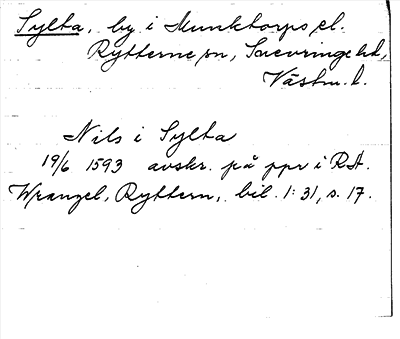 Sylta, by i Munktorps el.
Rytterne sn, Snevringe hd,
Västm. l.
Nils i Sylta
19/6 1593 avskr. på ppr i RA.
Wrangel, Ryttern, bil. 1:31, s. 17.